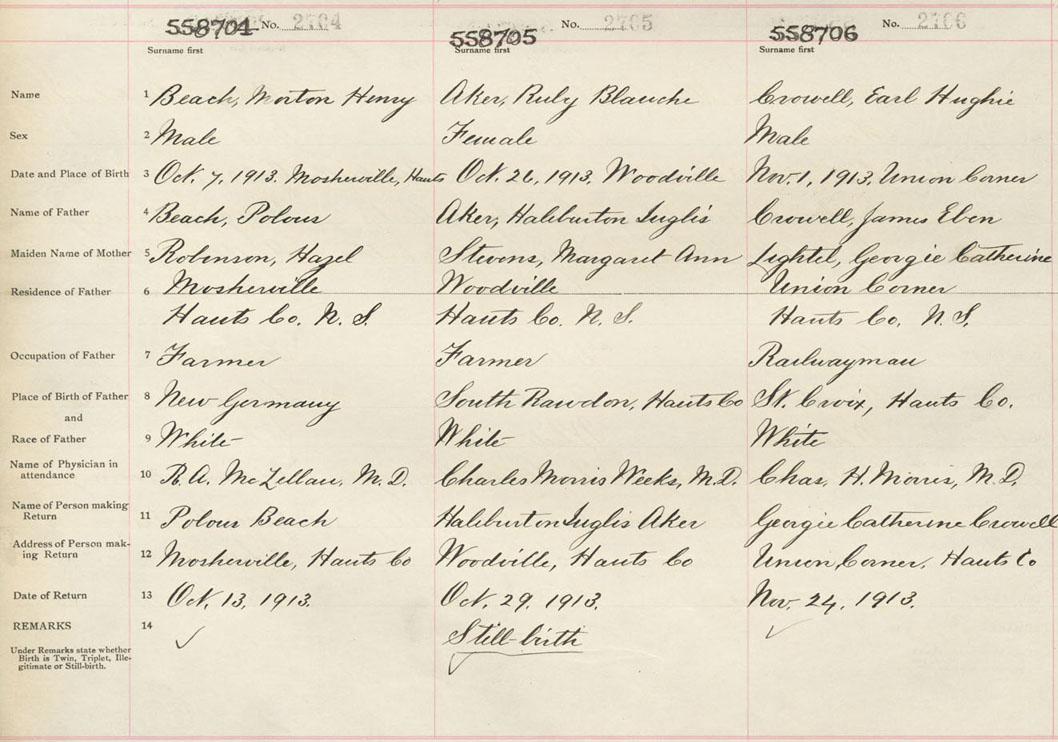 558704 No. 2704 558705 No. 2705 558706 No. 2706
Surname first Surname first Surname first
Name 1 Beach, Morton Henry Aker, Ruby Blanche Crowell, Earl Hughie
Sex 2 Male Female Male
Date and Place of Birth 3 Oct. 7, 1913. Mosherville, Hants Oct. 26, 1913, Woodville Nov. 1, 1913, Union Corner
Name of Father 4 Beach, Polous Aker, Haliburton Inglis Crowell, James Eben
Maiden Name of Mother 5 Robinson, Hazel Stevens, Margaret Ann Georgie Catherine
Residence of Father 6 Mosherville Woodville Union Corner
Hants Co. N. S. Hants Co. N. S. Hants Co. N. S.
Occupation of Father 7 Farmer Farmer Railwayman
Place of Birth of Father 8 New Germany South Rawdon, Hants Co St. Croix, Hants Co.
and
Race of Father 9 White White White
Name of Physician in
attendance 10 R. A. McLellan, M. D. Charles Morris Weeks, M.D. Chas. H. Morris, M.D.
Name of Person making
Return 11 Polous Beach Haliburton Inglis Aker Georgie Catherine Crowell
Address of Person mak-
ing Return 12 Mosherville, Hants Co Woodville, Hants Co Union Corner, Hants Co
Date of Return 13 Oct. 13, 1913. Oct. 29, 1913. Nov. 24, 1913.
REMARKS 14 Still-birth
Under Remarks state whether
Birth is Twin, Triplet, Ille-
gitimate or Still-birth.